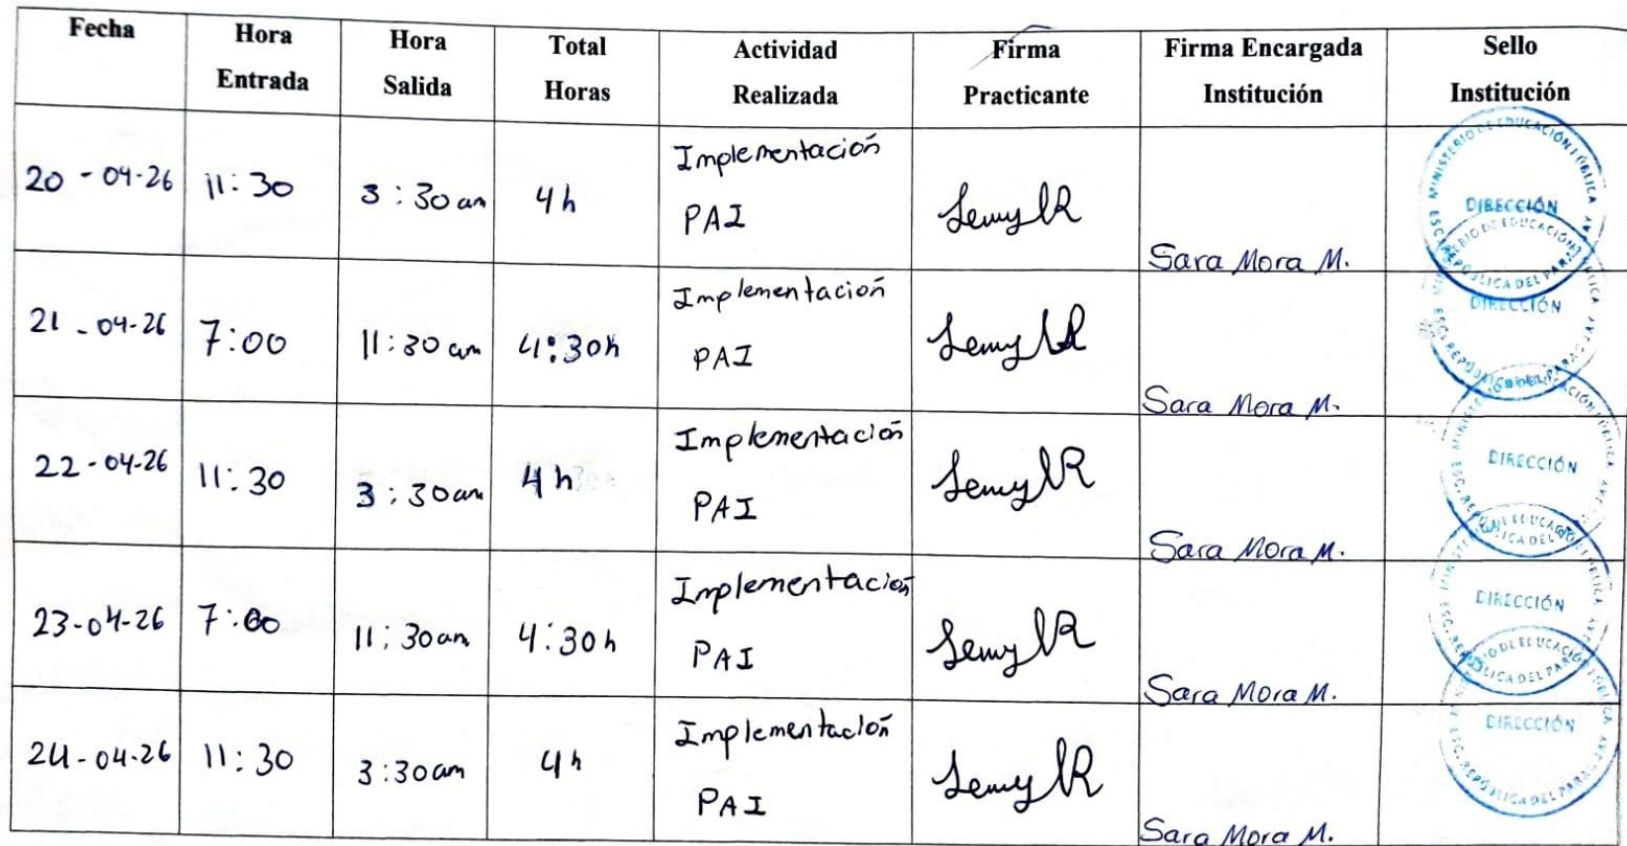 Fecha
Hora
Entrada
Hora
Salida
Total
Horas
Actividad
Realizada
Firma
Practicante
Firma Encargada
Institución
Sello
Institución
20-04-26
11:30
3:30am
4h
Implementación
PAI
Sara Mora M.
MINISTERIO DE EDUCACIÓN PÚBLICA
DIRECCIÓN
21-04-26
7:00
11:30am
4:30h
Implementación
PAI
Sara Mora M.
DIRECCIÓN
22-04-26
11:30
3:30am
4h
Implementación
PAI
Sara Mora M.
DIRECCIÓN
23-04-26
7:00
11:30am
4:30h
Implementación
PAI
Sara Mora M.
DIRECCIÓN
24-04-26
11:30
3:30am
4h
Implementación
PAI
Sara Mora M.
DIRECCIÓN